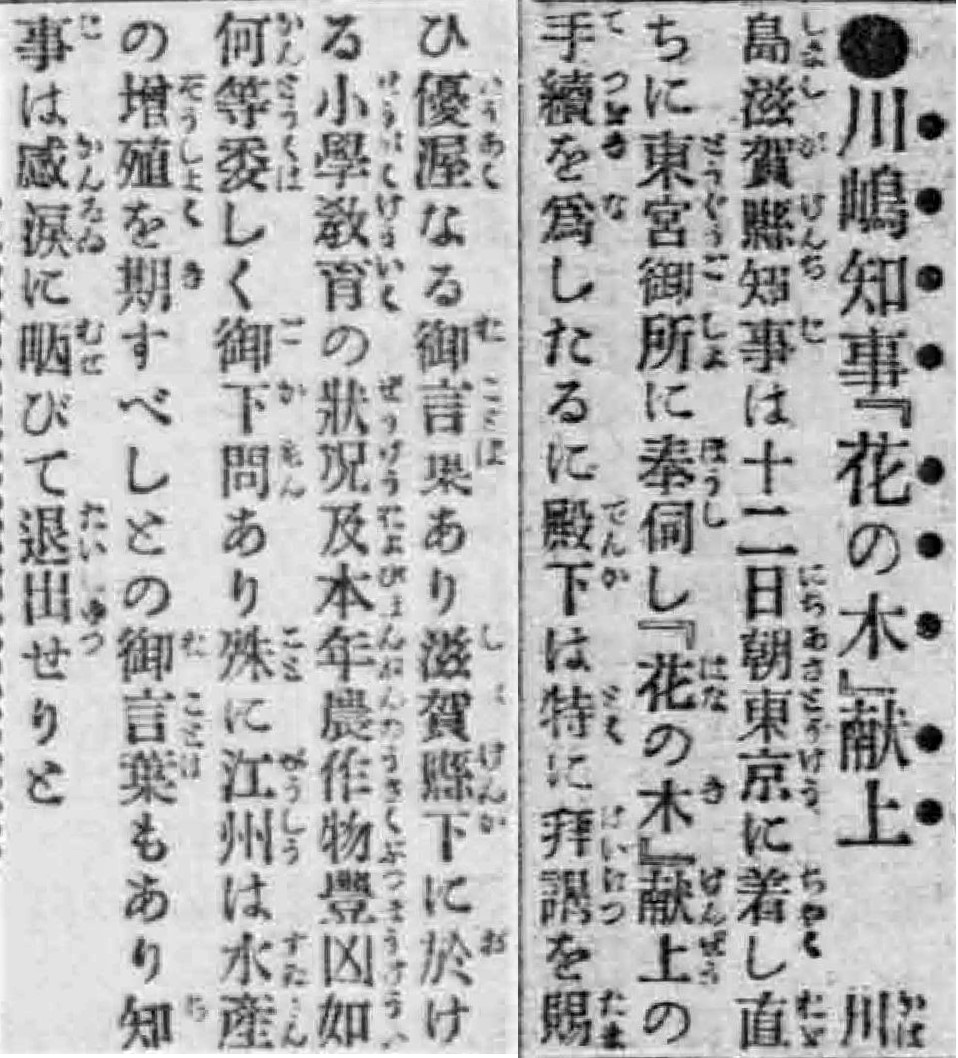 ●川嶋知事『花の木』献上　川
島滋賀縣知事は十二日朝東京に着し直
ちに東宮御所に奉伺し『花の木』献上の
手續を爲したるに殿下は特に拜謁を賜
ひ優渥なる御言葉あり滋賀縣下に於け
る小學敎育の狀况及本年農作物豐凶如
何等委しく御下問あり殊に江州は水産
の增殖を期すべしとの御言葉もあり知
事は感淚に咽びて退出せりと